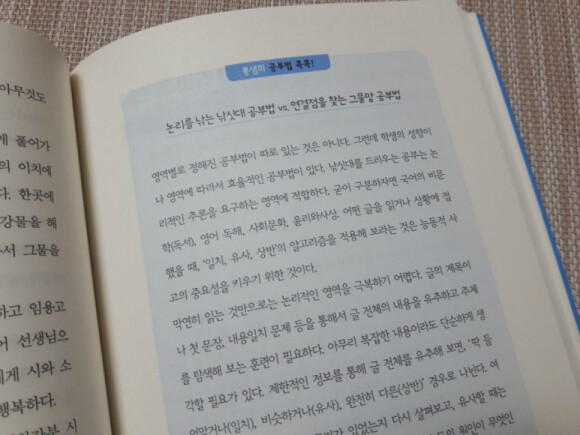 아무것도
게 풀어가
의 이치에
다. 한곳에
강물을 해
서 그물을
하고 임용고
선생님으
에게 시와 소
행복하다.
공부법 콕콕!
논리를 낚는 낚싯대 공부법 vs. 연결점을 찾는 그물망 공부법
영역별로 정해진 공부법이 따로 있는 것은 아니다. 그런데 학생의 성향이
나 영역에 따라서 효율적인 공부법이 있다. 낚싯대를 드리우는 공부는 논
리적인 추론을 요구하는 영역에 적합하다. 굳이 구분하자면 국어의 비문
학(독서), 영어 독해, 사회문화, 윤리와사상. 어떤 글을 읽거나 상황에 접
했을 때, '일치, 유사, 상반'의 알고리즘을 적용해 보라는 것은 능동적 사
고의 중요성을 키우기 위한 것이다.
막연히 읽는 것만으로는 논리적인 영역을 극복하기 어렵다. 글의 제목이
나 첫 문장, 내용일치 문제 등을 통해서 글 전체의 내용을 유추하고 주제
를 탐색해 보는 훈련이 필요하다. 아무리 복잡한 내용이라도 단순하게 생
각할 필요가 있다. 제한적인 정보를 통해 글 전체를 유추해 보면, '딱 들
어맞거나(일치), 비슷하거나(유사), 완전히 다른(상반)' 경우로 나뉜다. 여
있었는지 다시 살펴보고, 유사할 때는
원인이 무엇인